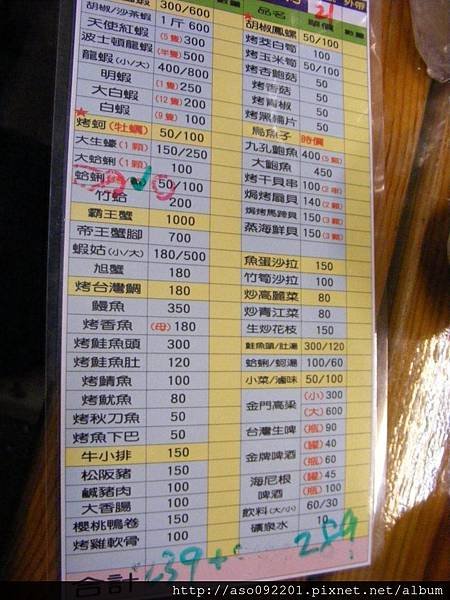 300/600
胡椒/沙茶蝦
天使紅蝦 1斤600
波士頓龍蝦 (5隻)300
龍蝦(小/大) (半隻)500
明蝦 400/800
大白蝦 (1隻)250
白蝦 (12隻)200
(9隻)100
烤蚵(牡蠣) 50/100
大生蠔(1顆) 150/250
大蛤蜊(1顆) 100
蛤蜊 50/100
竹蛤 200
霸王蟹 1000
帝王蟹腳 700
蝦姑(小/大) 180/500
旭蟹 180
烤台灣鯛 180
鰻魚 350
烤香魚 (母)180
烤鮭魚頭 300
烤鮭魚肚 120
烤鯖魚 100
烤魷魚 80
烤秋刀魚 50
烤魚下巴 50
牛小排 150
松阪豬 150
鹹豬肉 100
大香腸 100
櫻桃鴨卷 150
烤雞軟骨 100
合計
品名 單價 數量 外帶
21
胡椒鳳螺 50/100
烤茭白筍 100
烤玉米筍 50/100
烤杏鮑菇 50
烤香菇 50
烤青椒 50
烤黑輪片 50
烏魚子 時價
九孔鮑魚 400(5顆)
大鮑魚 450
烤干貝串 100(2串)
焗烤扇貝 140(2顆)
焗烤馬蹄貝 150(3顆)
蒸海鮮貝 150(3顆)
魚蛋沙拉 150
竹筍沙拉 100
炒高麗菜 80
炒青江菜 80
生炒花枝 150
鮭魚頭/肚湯 300/120
蛤蜊/蚵湯 100/60
小菜/滷味 50/100
金門高粱 (小)300
(大)600
台灣生啤 (瓶)90
金牌啤酒 (罐)40
(瓶)60
海尼根啤酒 (罐)45
(瓶)100
飲料(大/小) 60/30
礦泉水 10
239+
289
http://aso092201.pixnet.net/album